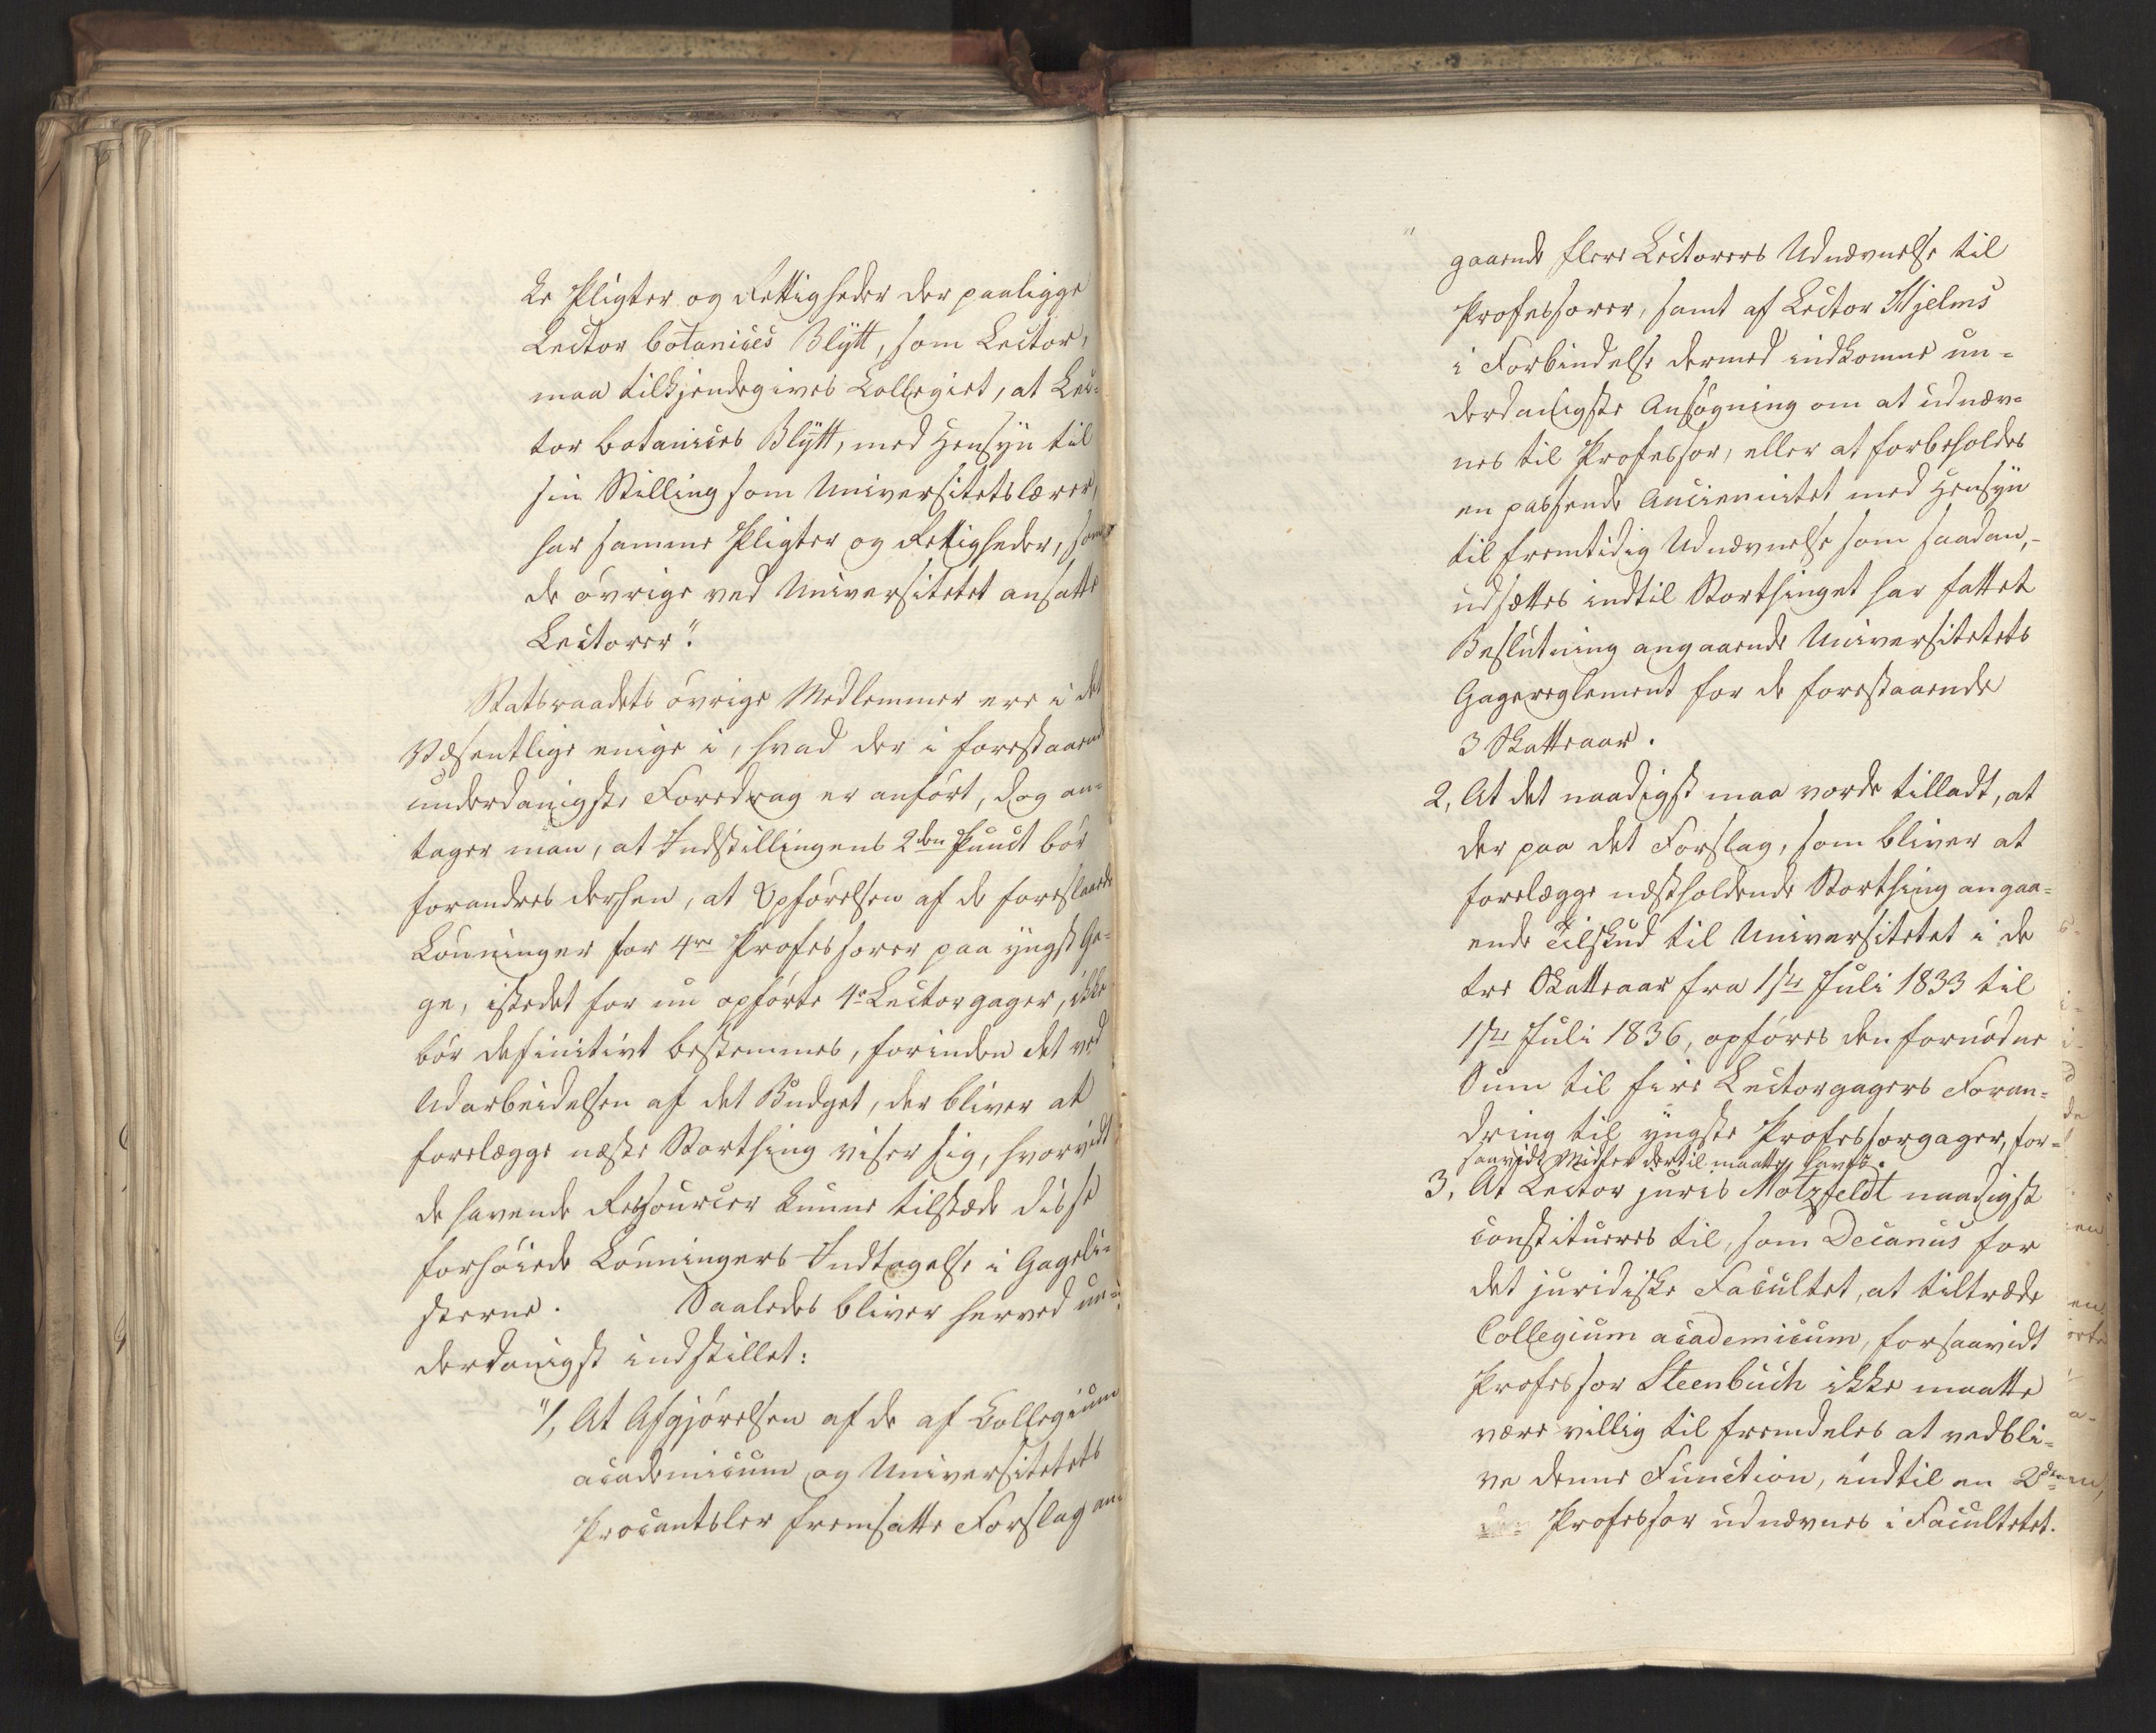 ke Pligter og Rettigheder der paaligge
Lector botanices Blÿtt, som Lector,
maa tilkjendegives Collegiet, at Lec-
tor botanices Blÿtt, med Hensyn til
sin Stilling som Universitetslærer,
har samme Pligter og Rettigheder, som
de øvrige ved Universitetet ansatte
Lectorer".
Statsraadets øvrige Medlemmer ere i det
Væsentlige enige i, hvad der i forestaaende
underdanigste Foredrag er anført, dog an-
tager man, at Indstillingens 2den Punct bør
forandres derhen, at Opførelsen af de foreslaaede
Lønninger for 4re Professorer paa yngst Ga-
ge, istedet for nu opførte 4re Lectorgager, ikke
bør definitivt bestemmes, forinden det ved
Udarbeidelsen af det Budget, der bliver at
forelægge næste Storthing viser sig, hvorvidt
de havende Ressourcer kunne tilstæde disse
forhøiede Lønningers Indtagelse i Gageli-
sterne. Saaledes bliver herved un-
derdanigst indstillet:
"1, At Afgjørelsen af de af Collegium
academicum og Universitetets
Procantsler fremsatte Forslag an-
gaaende flere Lectorers Udnævnelse til
Professorer, samt af Lector Hjelms
i Forbindelse dermed indkomne un-
derdanigste Ansøgning om at udnæv-
nes til Professor, eller at forbeholdes
en passende Anciennitet med Hensyn
til fremtidig Udnævnelse som saadan,-
udsættes indtil Storthinget har fattet
Beslutning angaaende Universitetets
Gagereglement for de forestaaende
3 Skatteaar.
2, At det naadigst maa vorde tilladt, at
der paa det Forslag, som bliver at
forelægge næstholdende Storthing angaa-
ende Tilskud til Universitetet i de
tre Skatteaar fra 1ste Juli 1833 til
1ste Juli 1836, opføres den fornødne
Sum til fire Lectorgagers Foran-
dring til yngste Professorgager, for-
saavidt Midler dertil maatte haves.
3, At Lector juris Motzfeldt naadigst
constitueres til, som Decanus for
det juridiske Facultet, at tiltræde
Collegium academicum, forsaavidt
Professor Steenbuch ikke maatte
være villig til fremdeles at vedbli-
ve denne Function, indtil en 2den
Professor udnævnes i Facultetet.